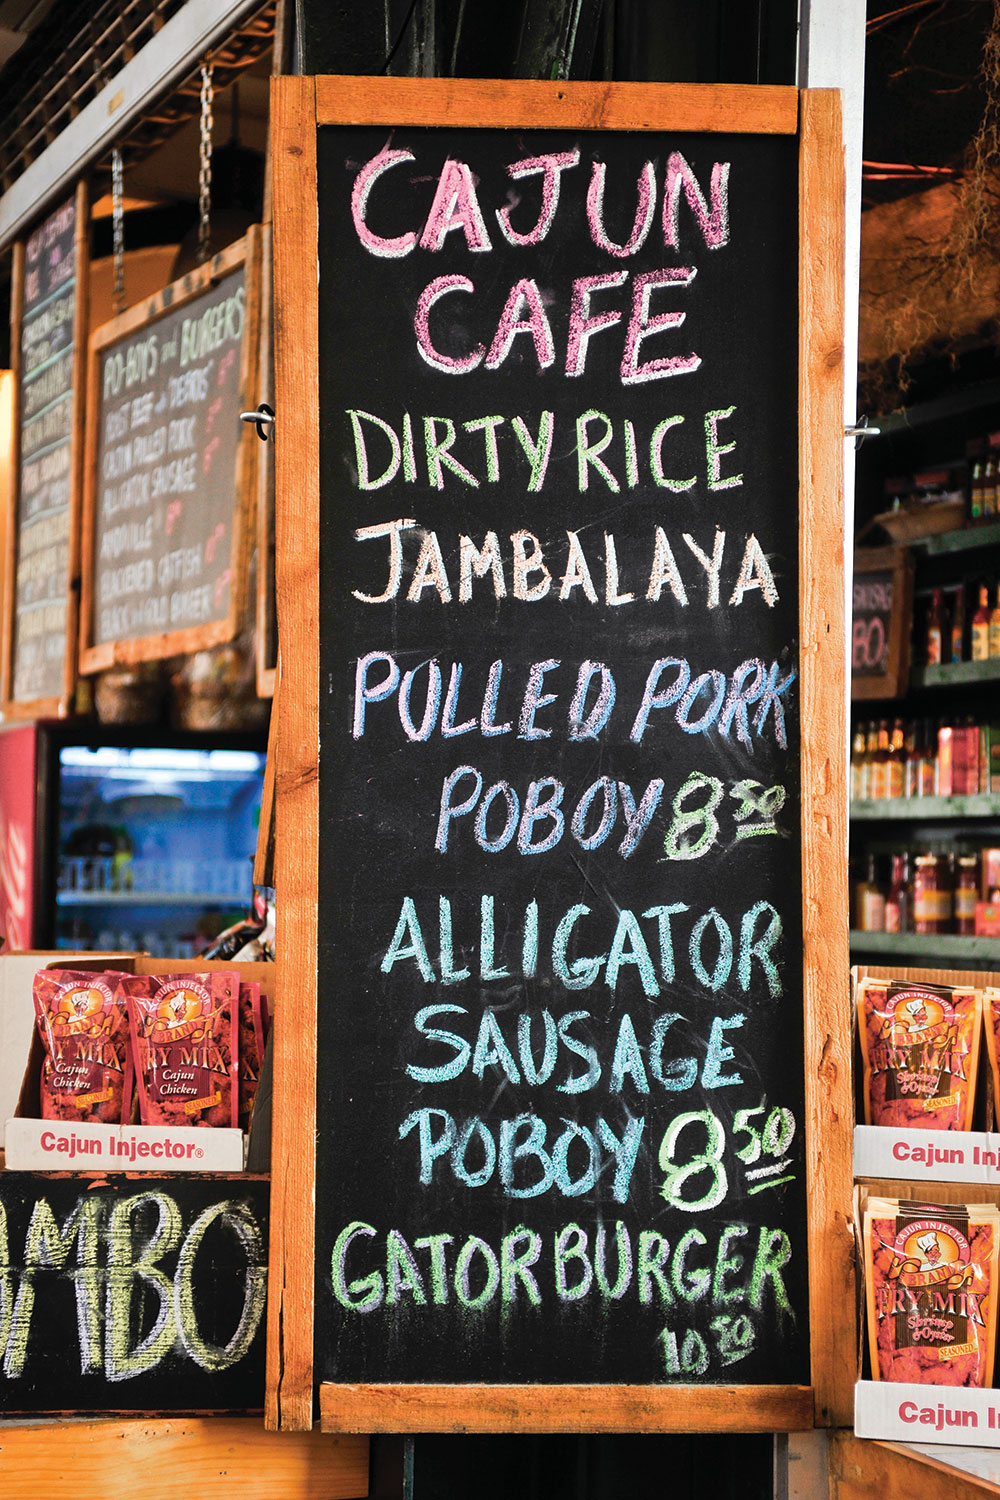 CAJUN
CAFE
DIRTY RICE
JAMBALAYA
PULLED PORK
POBOY 8 50
ALLIGATOR
SAUSAGE
POBOY 8 50
GATOR BURGER
10 50
PO-BOYS and BURGERS
ROAST BEEF with "DEBRIS"
CAJUN PULLED PORK
ALLIGATOR SAUSAGE
ANDOUILLE
BLACKENED CATFISH
BLACK and GOLD BURGER
CAJUN INJECTOR
BRAND
FRY MIX
Cajun
Chicken
CAJUN INJECTOR
BRAND
FRY MIX
Cajun
Chicken
SEASONED
Cajun Injector®
MBO
CAJUN INJECTOR
BRAND
FRY MIX
Shrimp
& Oyster
SEASONED
Cajun In
CAJUN INJECTOR
BRAND
FRY MIX
Shrimp
& Oyster
SEASONED
Cajun I